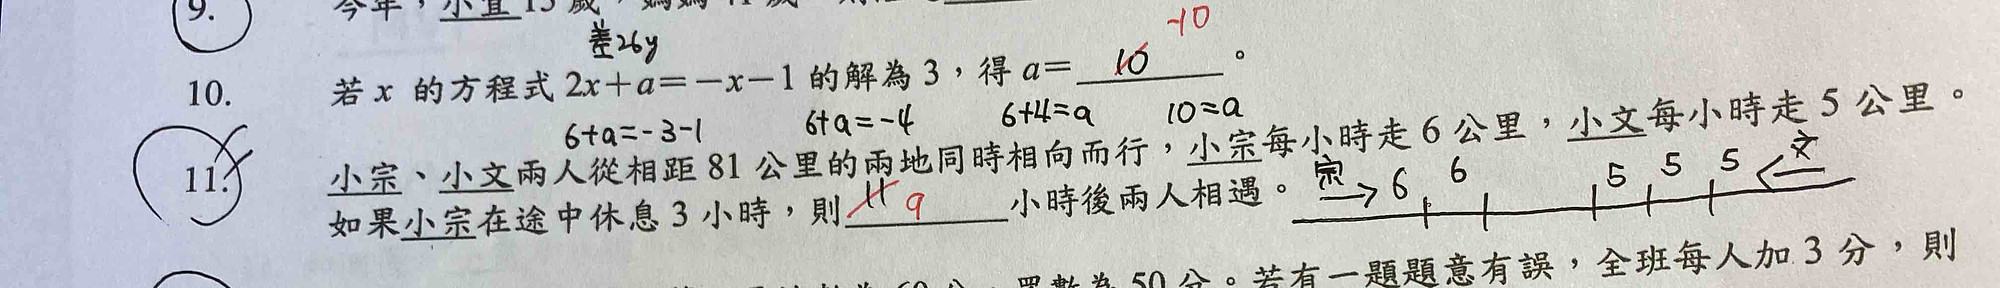 9.
今年，小宜 15 歲，媽媽 41 歲
差26y
-10
10. 若 x 的方程式 2x+a=-x-1 的解為 3，得 a= 10 。
6+a=-3-1 6+a=-4 6+4=a 10=a
11. 小宗、小文兩人從相距 81 公里的兩地同時相向而行，小宗每小時走 6 公里，小文每小時走 5 公里。
宗 → 6 6 5 5 5 ← 文
如果小宗在途中休息 3 小時，則 11 9 小時後兩人相遇。
眾數為 50 分。若有一題題意有誤，全班每人加 3 分，則